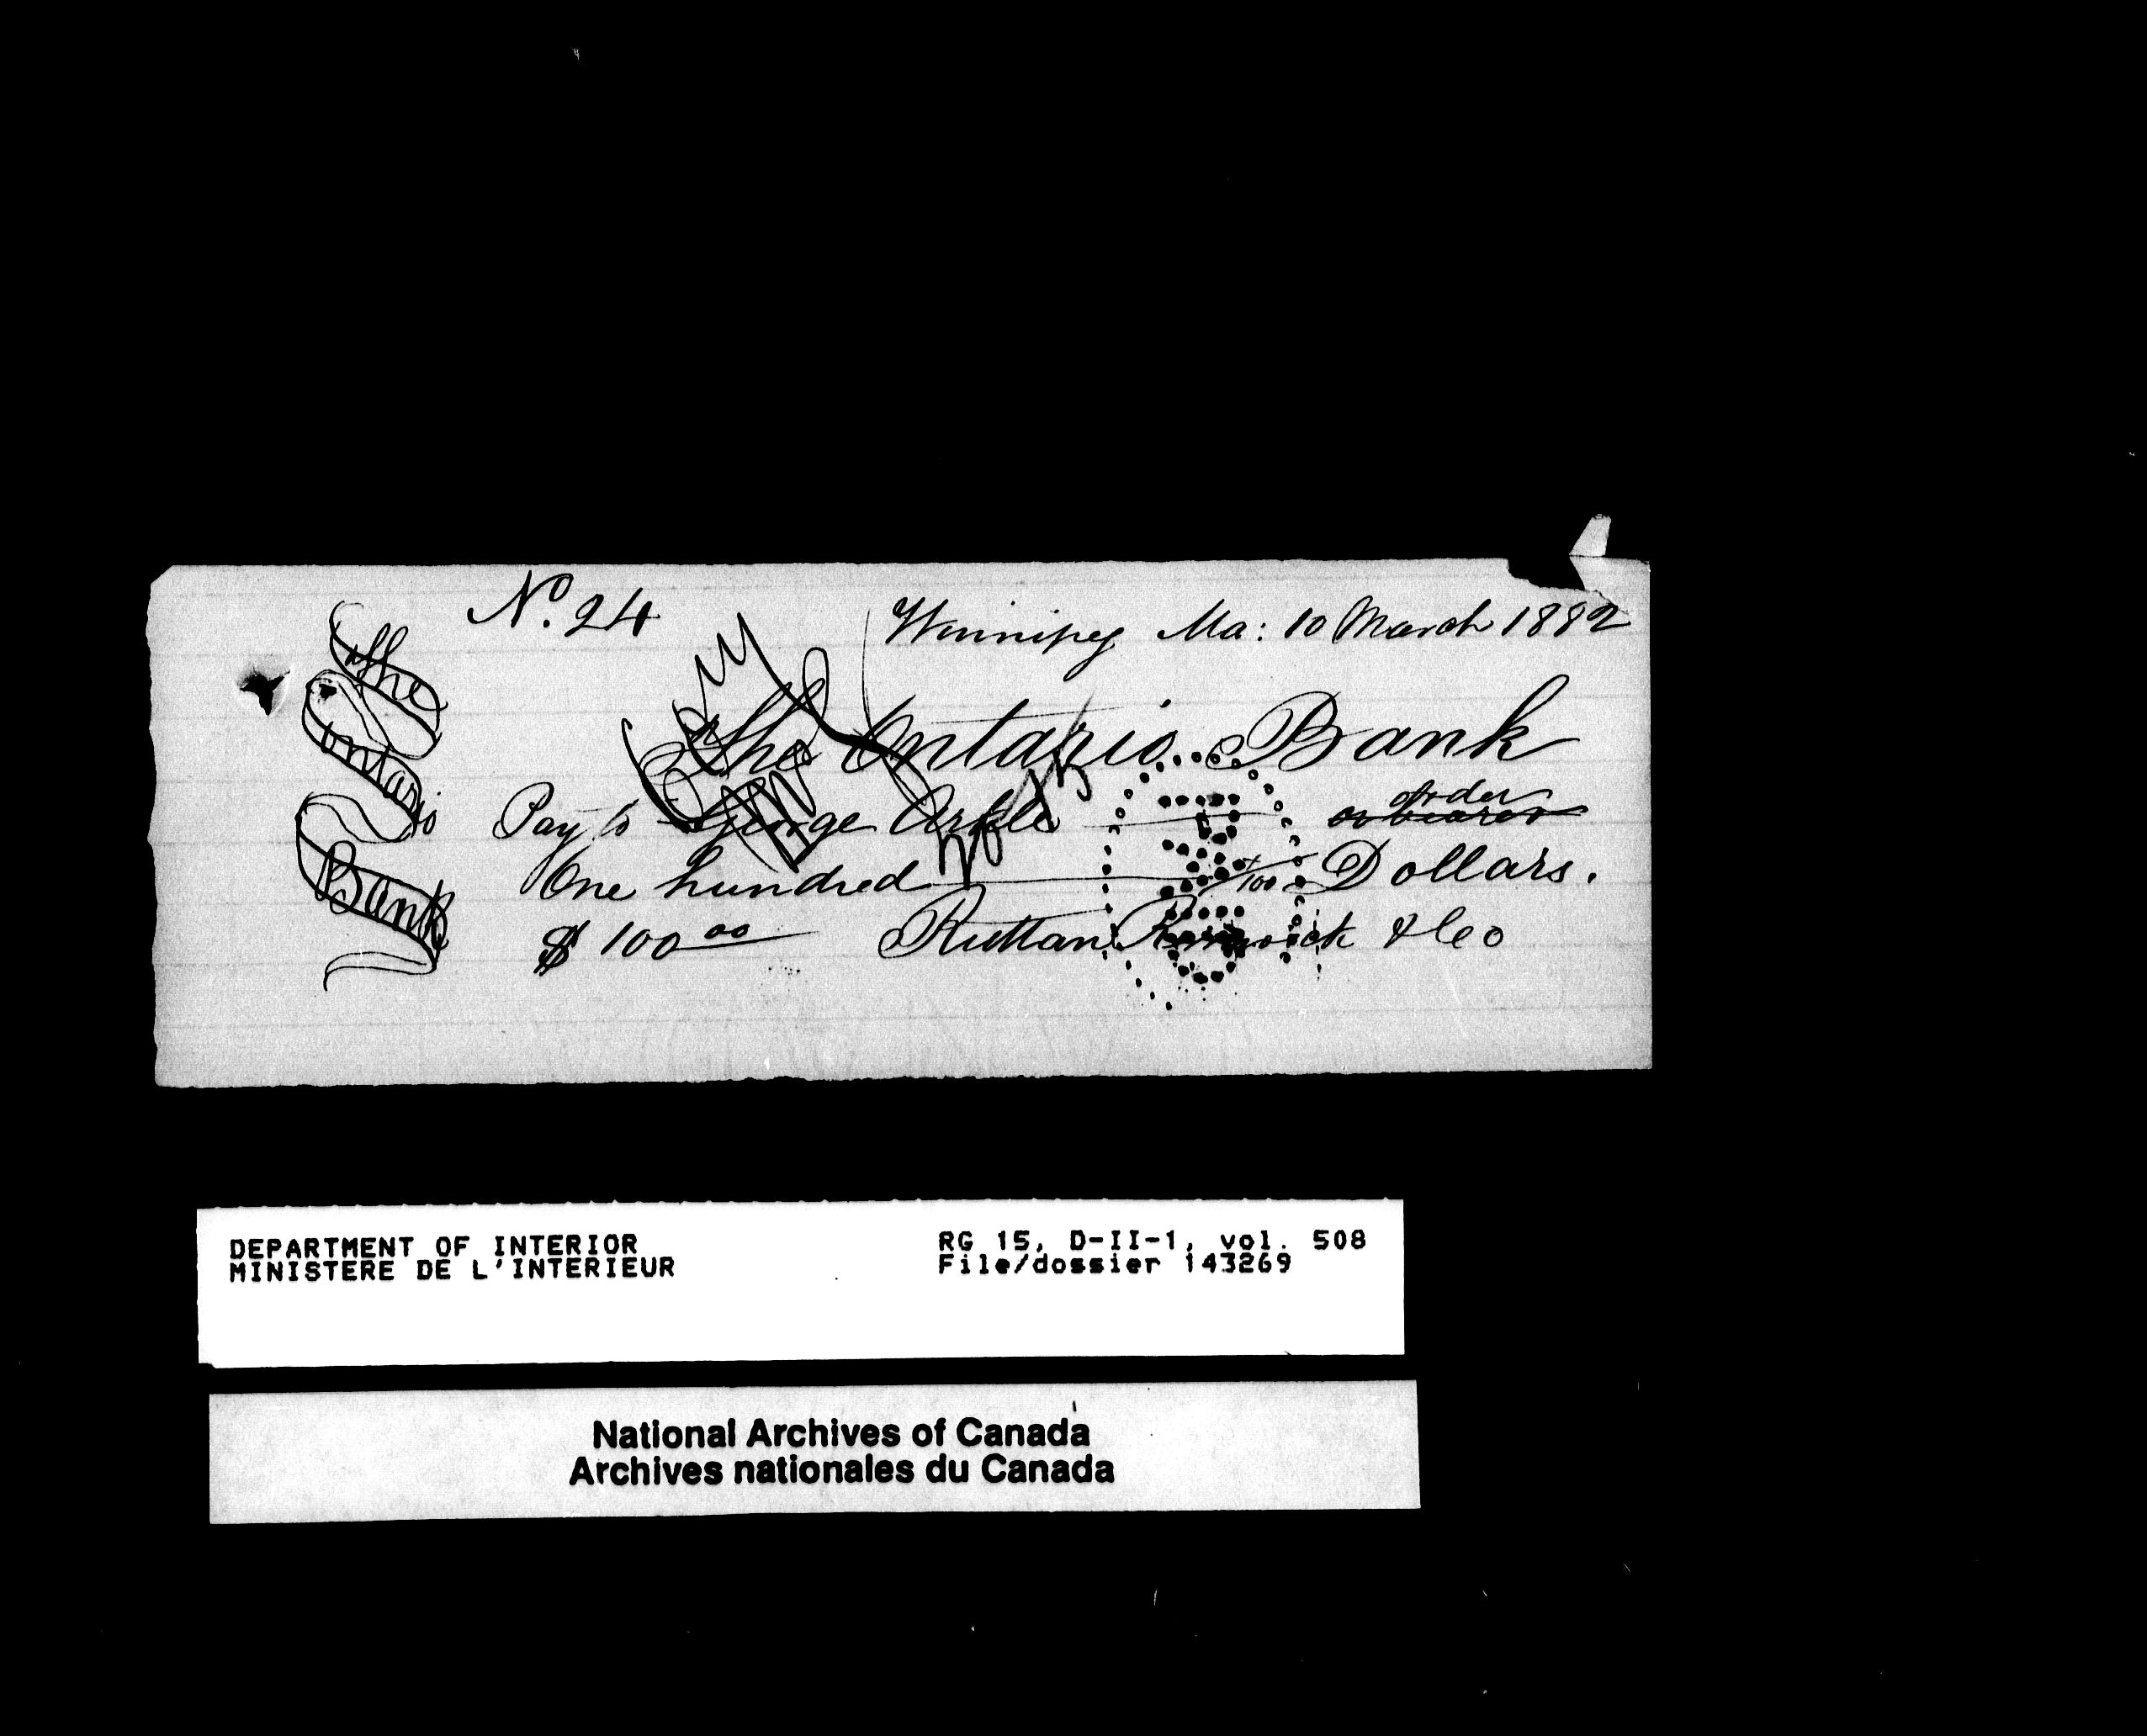 The
Ontario
Bank
No. 24
Winnipeg Ma: 10 March 1882
The Ontario Bank
Pay to George Arkle order
or bearer
One hundred /100 Dollars.
$ 100 00 Ruttan & Co
DEPARTMENT OF INTERIOR RG 15, D-II-1, vol. 508
MINISTERE DE L'INTERIEUR File/dossier 143269
National Archives of Canada
Archives nationales du Canada